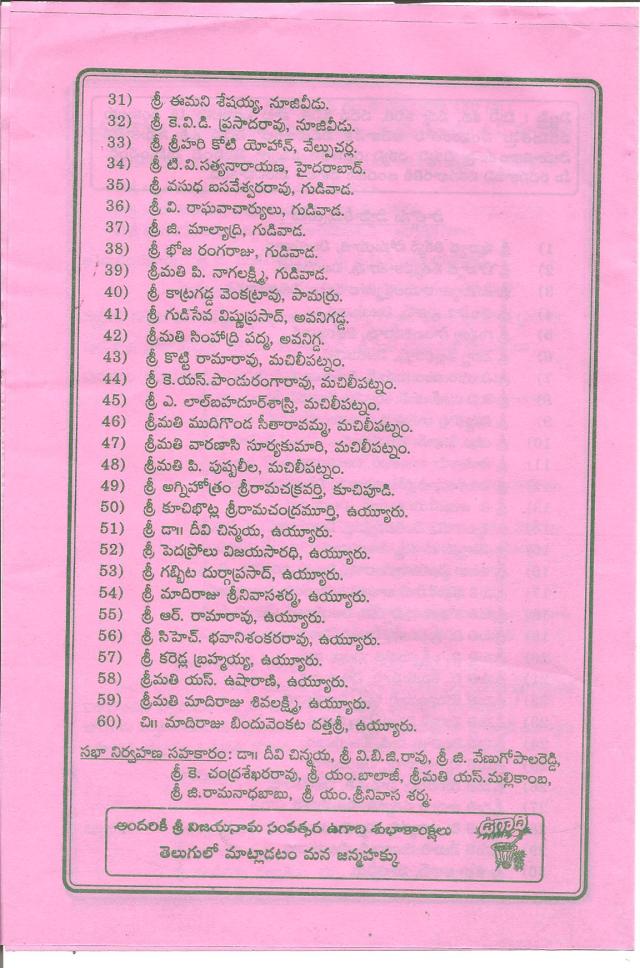 31) శ్రీ ఈమని శేషయ్య, నూజివీడు.
32) శ్రీ కె.వి.డి. ప్రసాదరావు, నూజివీడు.
33) శ్రీ శ్రీహరి కోటి యోహాన్, వేల్పుచర్ల.
34) శ్రీ టి.వి.సత్యనారాయణ, హైదరాబాద్.
35) శ్రీ వసుధ బసవేశ్వరరావు, గుడివాడ.
36) శ్రీ వి. రాఘవాచార్యులు, గుడివాడ.
37) శ్రీ జి. మాల్యాద్రి, గుడివాడ.
38) శ్రీ భోజ రంగరాజు, గుడివాడ.
39) శ్రీమతి పి. నాగలక్ష్మి, గుడివాడ.
40) శ్రీ కాట్రగడ్డ వెంకట్రావు, పామర్రు.
41) శ్రీ గుడిసేవ విష్ణుప్రసాద్, అవనిగడ్డ.
42) శ్రీమతి సింహాద్రి పద్మ, అవనిగ్డ.
43) శ్రీ కొట్టి రామారావు, మచిలీపట్నం.
44) శ్రీ కె.యస్.పాండురంగారావు, మచిలీపట్నం.
45) శ్రీ ఎ. లాల్‌బహదూర్‌శాస్త్రి, మచిలీపట్నం.
46) శ్రీమతి ముదిగొండ సీతారావమ్మ, మచిలీపట్నం.
47) శ్రీమతి వారణాసి సూర్యకుమారి, మచిలీపట్నం.
48) శ్రీమతి పి. పుష్పలీల, మచిలీపట్నం.
49) శ్రీ అగ్నిహోత్రం శ్రీరామచక్రవర్తి, కూచిపూడి.
50) శ్రీ కూచిభొట్ల శ్రీరామచంద్రమూర్తి, ఉయ్యూరు.
51) శ్రీ డా॥ దీవి చిన్మయ, ఉయ్యూరు.
52) శ్రీ పెదప్రోలు విజయసారధి, ఉయ్యూరు.
53) శ్రీ గబ్బిట దుర్గాప్రసాద్, ఉయ్యూరు.
54) శ్రీ మాదిరాజు శ్రీనివాసశర్మ, ఉయ్యూరు.
55) శ్రీ ఆర్. రామారావు, ఉయ్యూరు.
56) శ్రీ సిహెచ్. భవానిశంకరరావు, ఉయ్యూరు.
57) శ్రీ కరెడ్ల బ్రహ్మయ్య, ఉయ్యూరు.
58) శ్రీమతి యస్. ఉషారాణి, ఉయ్యూరు.
59) శ్రీమతి మాదిరాజు శివలక్ష్మి, ఉయ్యూరు.
60) చి॥ మాదిరాజు బిందువెంకట దత్తశ్రీ, ఉయ్యూరు.
సభా నిర్వహణ సహకారం: డా॥ దీవి చిన్మయ, శ్రీ వి.బి.జి.రావు, శ్రీ జి. వేణుగోపాలరెడ్డి,
శ్రీ కె. చంద్రశేఖరరావు, శ్రీ యం.బాలాజీ, శ్రీమతి యస్.మల్లికాంబ,
శ్రీ జి.రామనాధబాబు, శ్రీ యం.శ్రీనివాస శర్మ.
అందరికీ శ్రీ విజయనామ సంవత్సర ఉగాది శుభాకాంక్షలు
తెలుగులో మాట్లాడటం మన జన్మహక్కు
ఉగాది